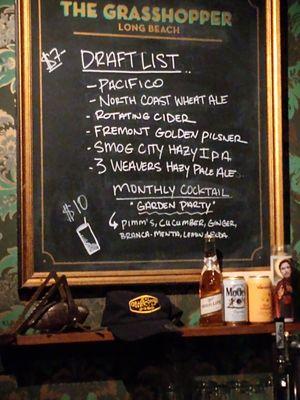 THE GRASSHOPPER
LONG BEACH
$7-
DRAFT LIST
- PACIFICO
- NORTH COAST WHEAT ALE
- ROTATING CIDER
- FREMONT GOLDEN PILSNER
- SMOG CITY HAZY IPA
- 3 WEAVERS HAZY PALE ALE
MONTHLY COCKTAIL
$10
"GARDEN PARTY"
PIMM'S, CUCUMBER, GINGER,
BRANCA-MENTA, LEMON, SODA
Modelo